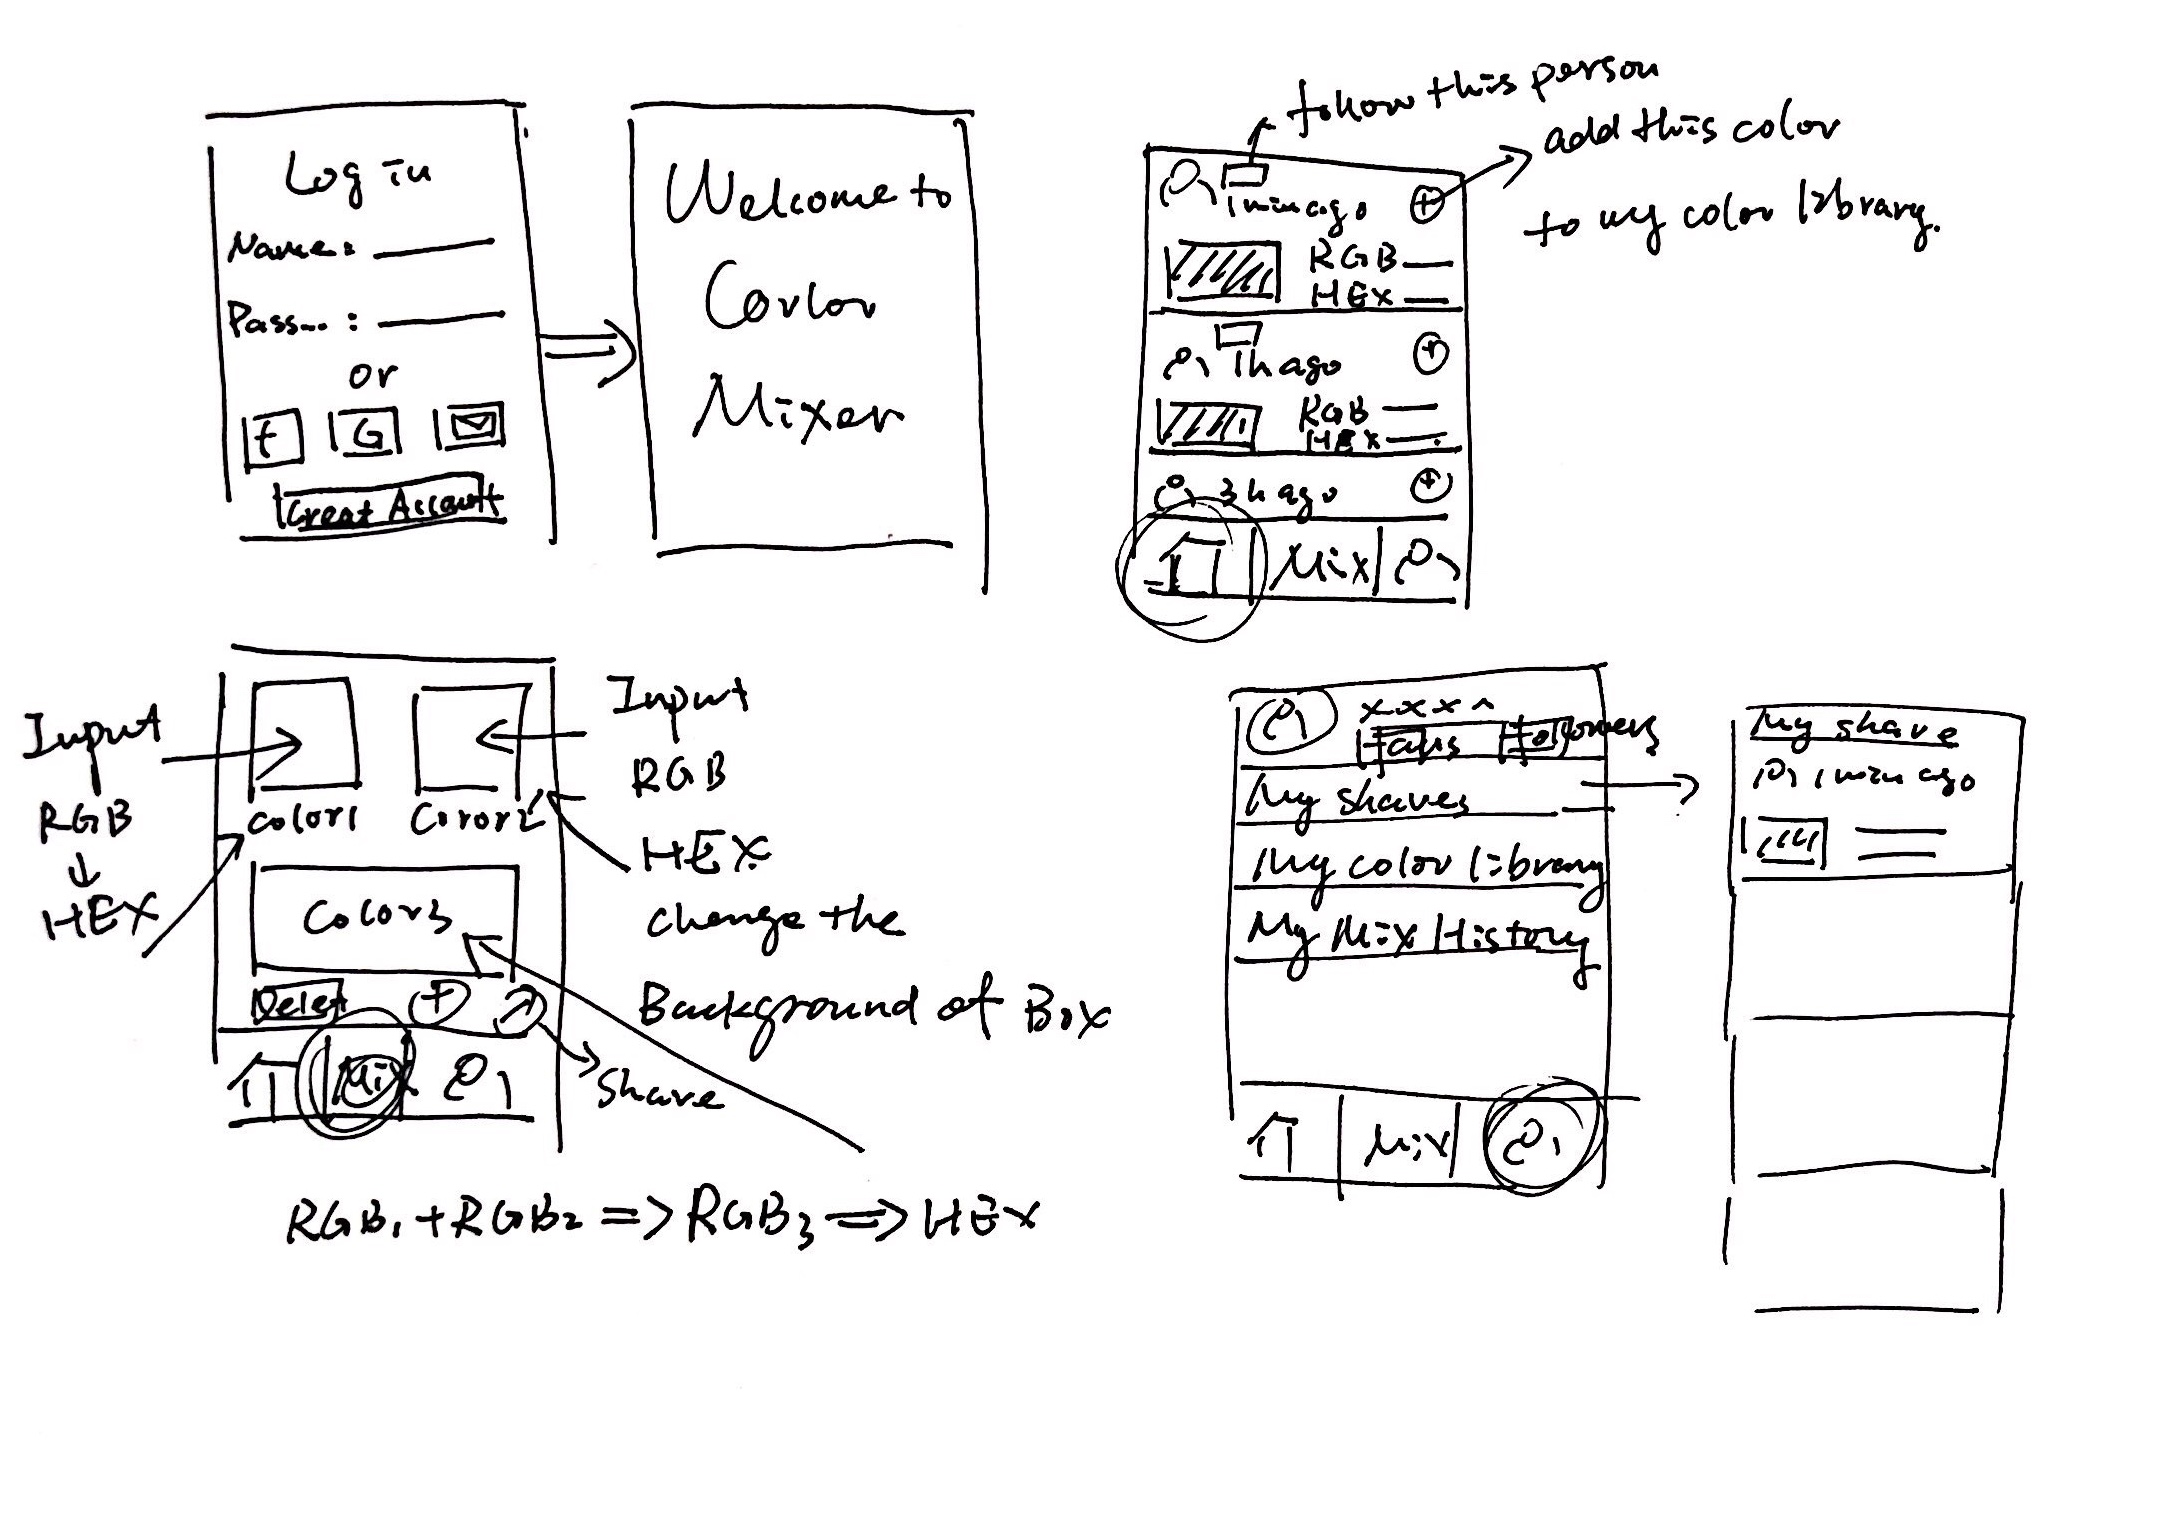 Log in
Name:
Pass... :
or
f G
Creat Account
Welcome to
Corlor
Mixer
follow this person
add this color
to my color library.
1 min ago
RGB
HEX
1h ago
RGB
HEX
3h ago
Mix
Input
RGB
HEX
Color1
Coror2
Color3
Delet
Mix
Input
RGB
HEX
change the
Background of Box
Share
RGB1 + RGB2 => RGB3 => HEX
xxxx
fans followers
My shares
My color library
My Mix History
Mix
My share
1 min ago